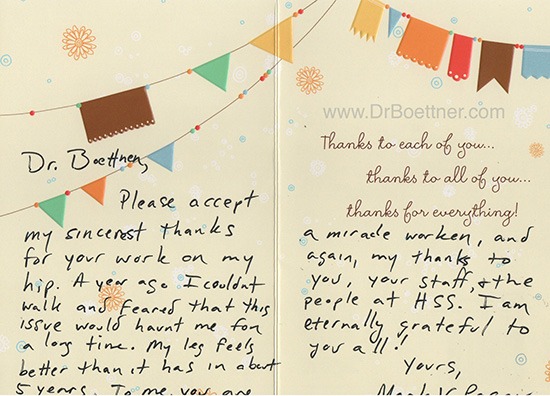 Dr. Boettner,
Please accept
my sincerest thanks
for your work on my
hip. A year ago I couldnt
walk and feared that this
issue would haunt me for
a long time. My leg feels
better than it has in about
5 years. To me, you are
www.DrBoettner.com
Thanks to each of you...
thanks to all of you...
thanks for everything!
a miracle worker, and
again, my thanks to
you, your staff, & the
people at HSS. I am
eternally grateful to
you all!
Yours,